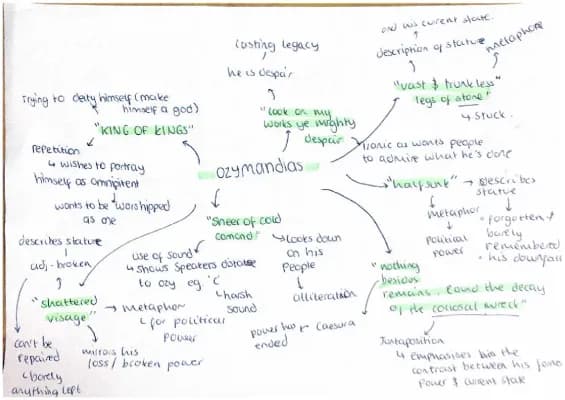 and his current state.
description of statue
metaphor
"vast & trunkless
legs of stone"
↳ stuck.
lasting legacy
he is despair
"look on my
works ye mighty
despair
ironic as wants people
to admire what he's done
Trying to deify himself (make
himself a god)
"KING OF KINGS"
repetition
↳ wishes to portray
himself as omnipitent
wants to be worshipped
as one
OZYMANDIAS
"half sunk" → describes
statue
metaphor
political
power
• forgotten &
barely
remembered
• his downfall
"Sneer of cold
comand"
Looks down
on his
people
alliteration
use of sound
↳ shows speakers
to ozy eg. 'C'
↳ harsh
sound
describes statue
adj - broken
"shattered
visage"
→ metaphor
↳ for political
power
mirrors his
loss / broken power
can't be
repaired
↳ barely
anything left
"nothing
besides
remains. round the decay
of the colossal wreck"
caesura
power has
ended
Juxtaposition
↳ emphasises the
contrast between his
power & current state